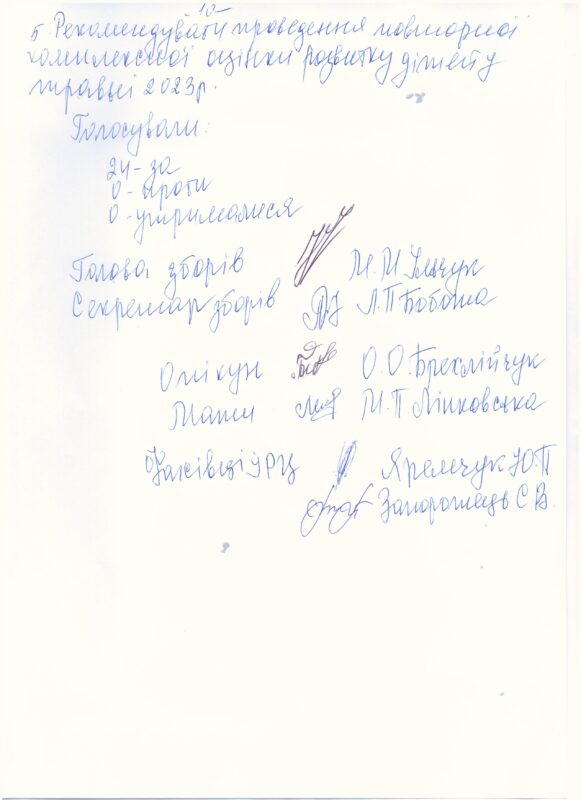 10-
5. Рекомендувати проведення повторної
комплексної оцінки розвитку дітей у
травні 2023р.
Голосували:
24 - за
0 - проти
0 - утрималися
Голова зборів М.М.
Секретар зборів Л.П Бобота
Опікун О.О.
Мати М.П. Лінковська
Фахівці ІРЦ Яремчук Ю.П
Запорожець С В.